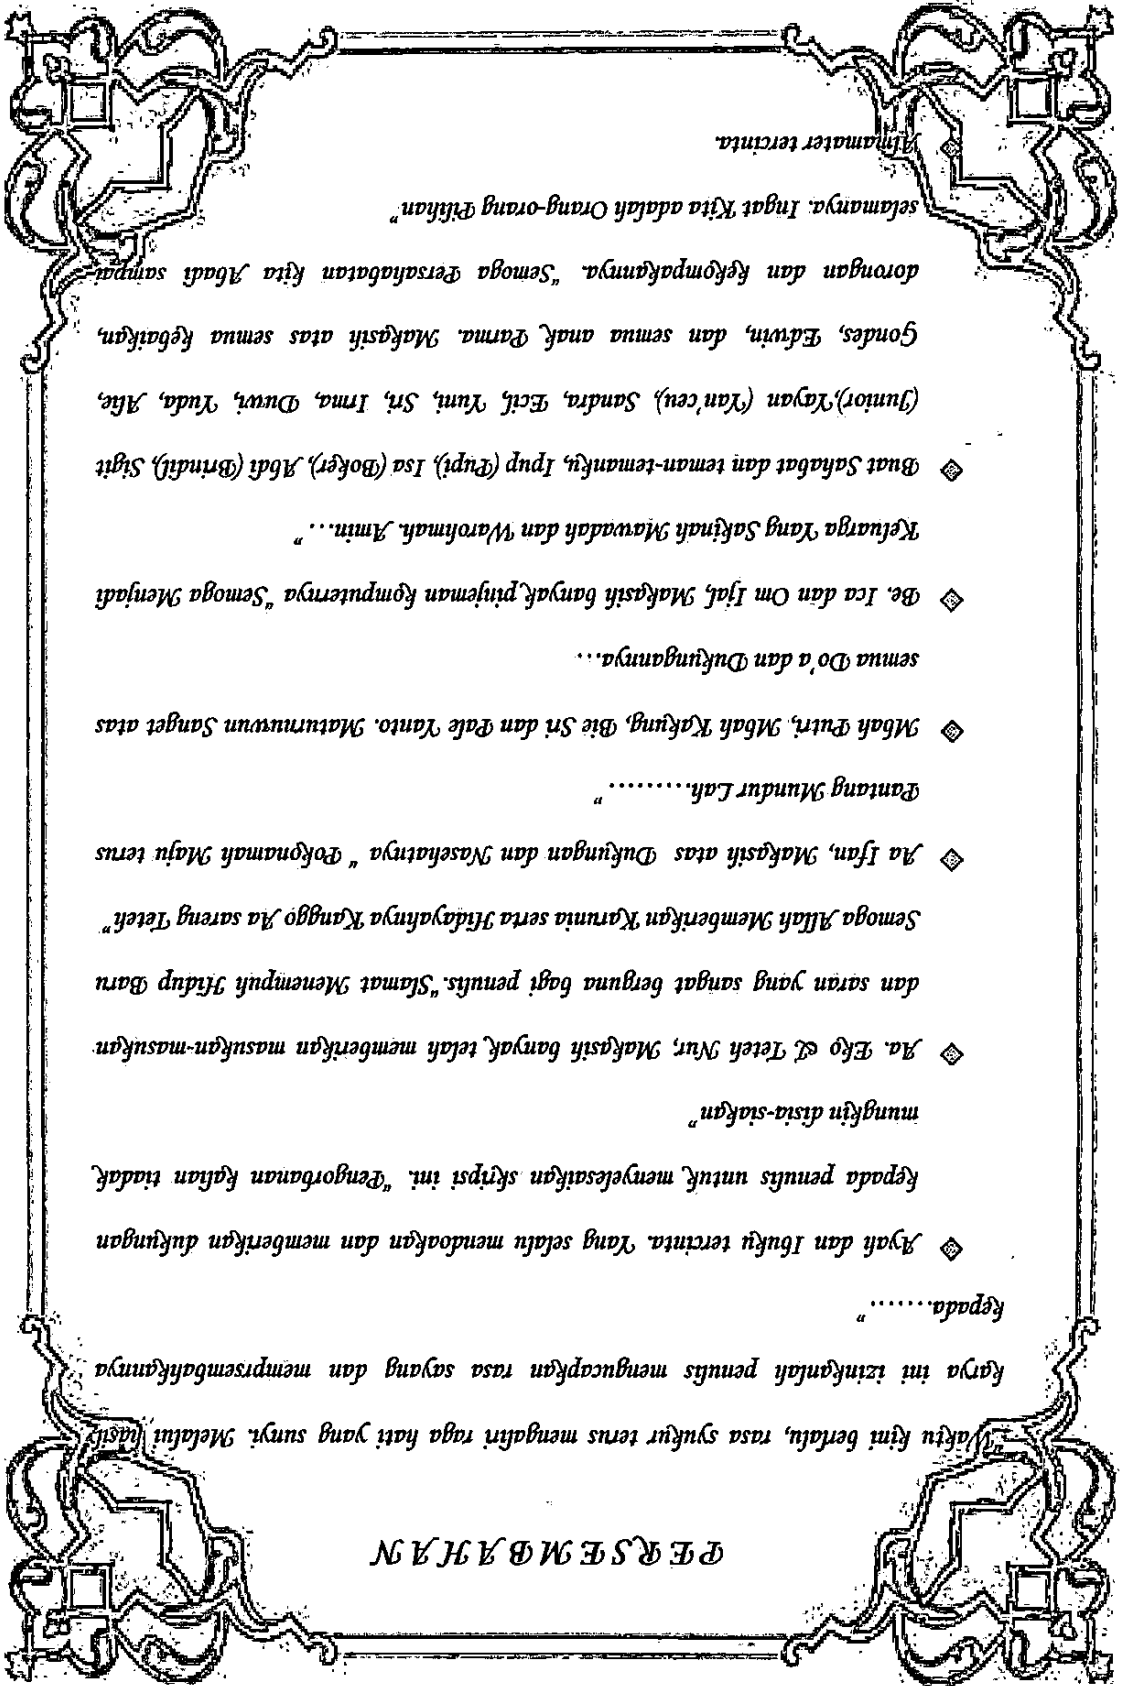 PERSEMBAHAN
"Waktu kini berlalu, rasa syukur terus mengaliri raga hati yang sunyi. Melalui hasil
karya ini izinkanlah penulis mengucapkan rasa sayang dan memprsembahkannya
kepada......."
◈ Ayah dan Ibuku tercinta. Yang selalu mendoakan dan memberikan dukungan
kepada penulis untuk menyelesaikan skripsi ini. "Pengorbanan kalian tiadak
mungkin disia-siakan"
◈ Aa. Eko & Teteh Nur, Makasih banyak telah memberikan masukan-masukan
dan saran yang sangat berguna bagi penulis. "Slamat Menempuh Hidup Baru
Semoga Allah Memberikan Karunia serta Hidayahnya Kanggo Aa sareng Teteh"
◈ Aa Ifan, Makasih atas Dukungan dan Nasehatnya " Pokonamah Maju terus
Pantang Mundur Lah.........."
◈ Mbah Putri, Mbah Kakung, Bie Sri dan Pale Yanto. Maturnuwun Sanget atas
semua Do'a dan Dukungannya...
◈ Be. Ica dan Om Ijal, Makasih banyak pinjeman komputernya "Semoga Menjadi
Keluarga Yang Sakinah Mawadah dan Warohmah. Amin..."
◈ Buat Sahabat dan teman-temanku, Ipup (Pupi), Isa (Boker), Abdi (Brindil), Sigit
(Junior), Yayan (Yan'ceu), Sandra, Ecil, Yuni, Sri, Irma, Duwi, Yuda, Alie,
Gondes, Edwin, dan semua anak Parma. Makasih atas semua kebaikan,
dorongan dan kekompakannya. "Semoga Persahabatan kita Abadi sampai
selamanya. Ingat Kita adalah Orang-orang Pilihan"
◈ Almamater tercinta.